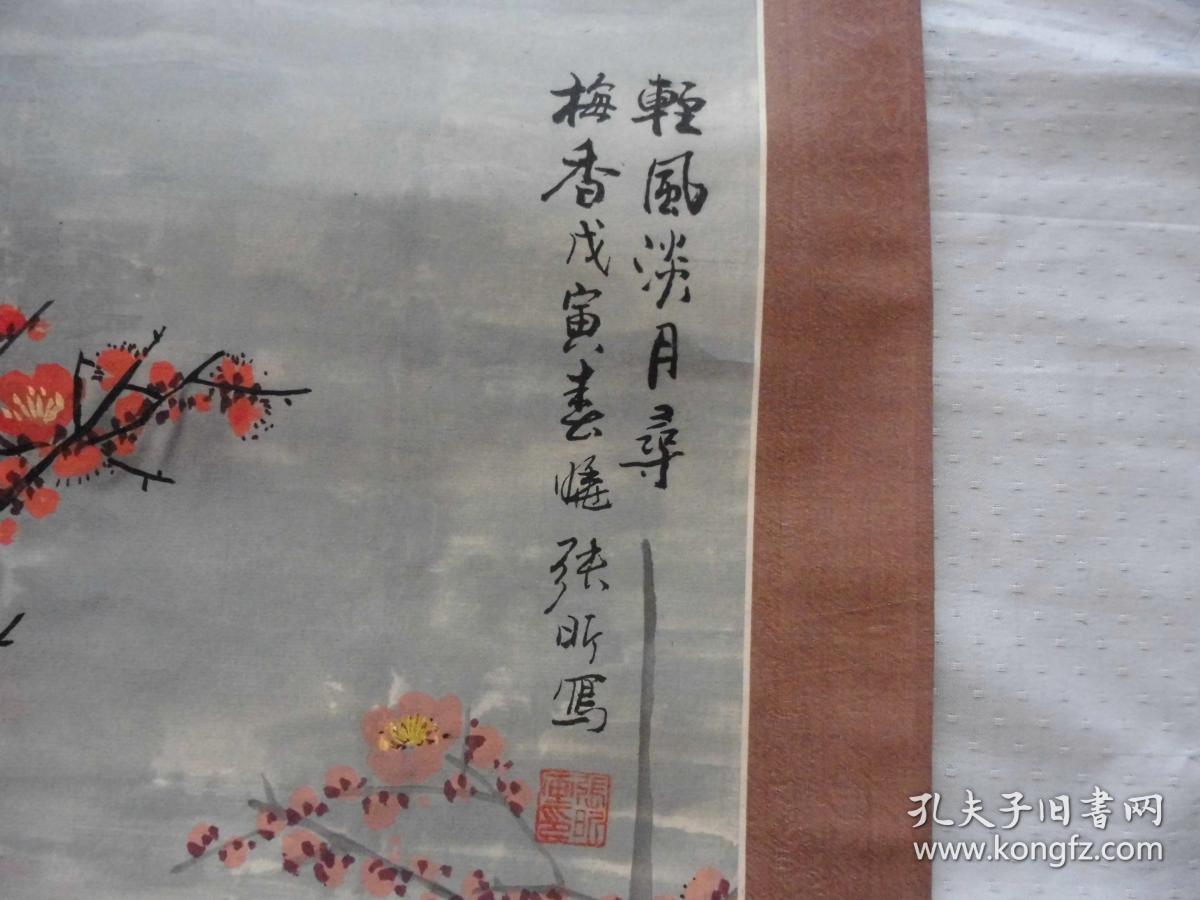 輕風淡月尋
梅香戊寅春曉張昕寫
張昕
孔夫子旧书网
www.kongfz.com